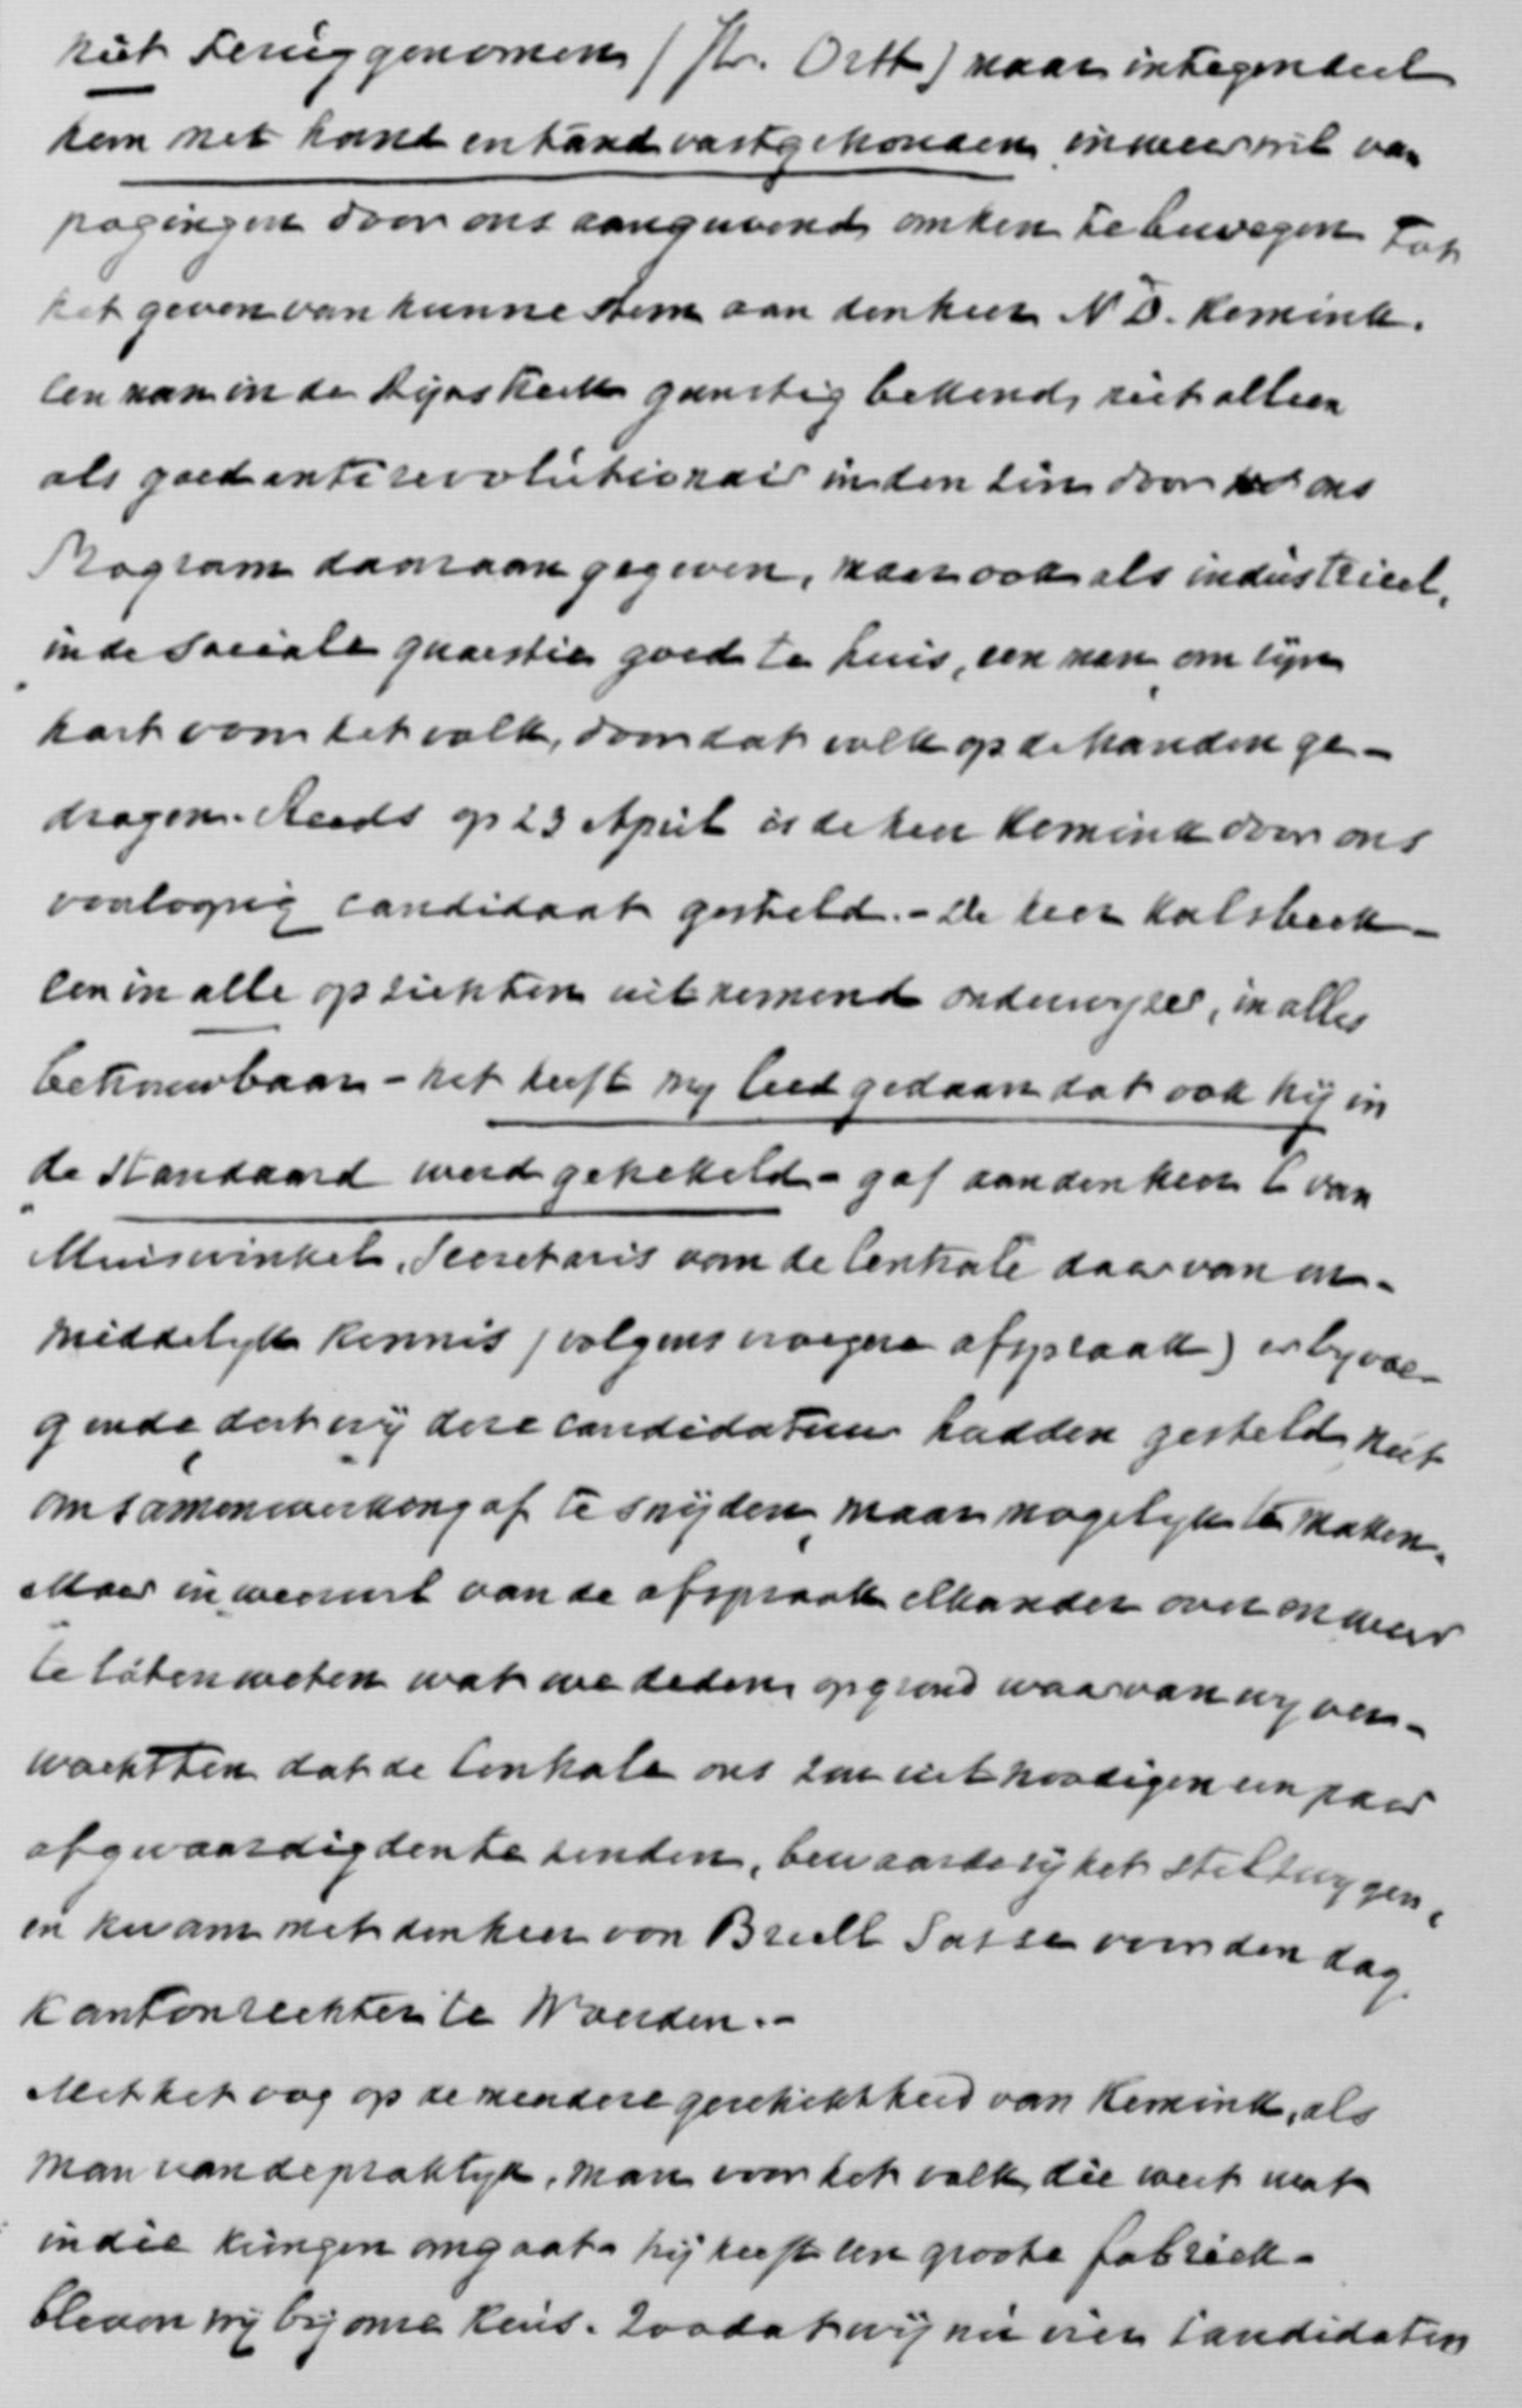 niet teruggenomen (Str. Ortt) maar integendeel
hem met hand en tand vastgehouden in weerwil van
pogingen door ons aangewend om hen te bewegen tot
het geven van hunne stem aan den heer N D. Kemink.
Een man in de Rijnstreek gunstig bekend, niet alleen
als goed antirevolutionair in den zin door ons
Program daaraan gegeven, maar ook als industrieel,
in de sociale quaestie goed te huis, een man om zijn
hart voor het volk, door dat volk op de handen ge-
dragen. Reeds op 23 April is de heer Kemink door ons
voorloopig candidaat gesteld. - De heer Kalsbeek -
een in alle opzichten uitnemend onderwijzer, in alles
betrouwbaar - het heeft mij leed gedaan dat ook hij in
de Standaard werd gehekeld - gaf aan den heer E van
Muiswinkel, Secretaris van de Centrale daarvan on-
middelijk kennis (volgens vroegere afspraak) er bij voe-
gende dat wij deze candidatuur hadden gesteld niet
om samenwerking af te snijden, maar mogelijk te maken.
Maar in weerwil van de afspraak elkander over en weer
te laten weten wat we deden, op grond waarvan wij ver-
wachtten dat de Centrale ons zou uitnoodigen een paar
afgevaardigden te zenden, bewaarde zij het stilzwijgen,
en kwam met den heer von Brucll Sasse voor den dag
Kantonrechter te Woerden. -
Met het oog op de meerdere geschiktheid van Kemink, als
man van de praktijk, man voor het volk, die weet wat
in die kringen omgaat - hij heeft een groote fabriek -
bleven wij bij onze keus. Zoodat wij nu vier candidaten